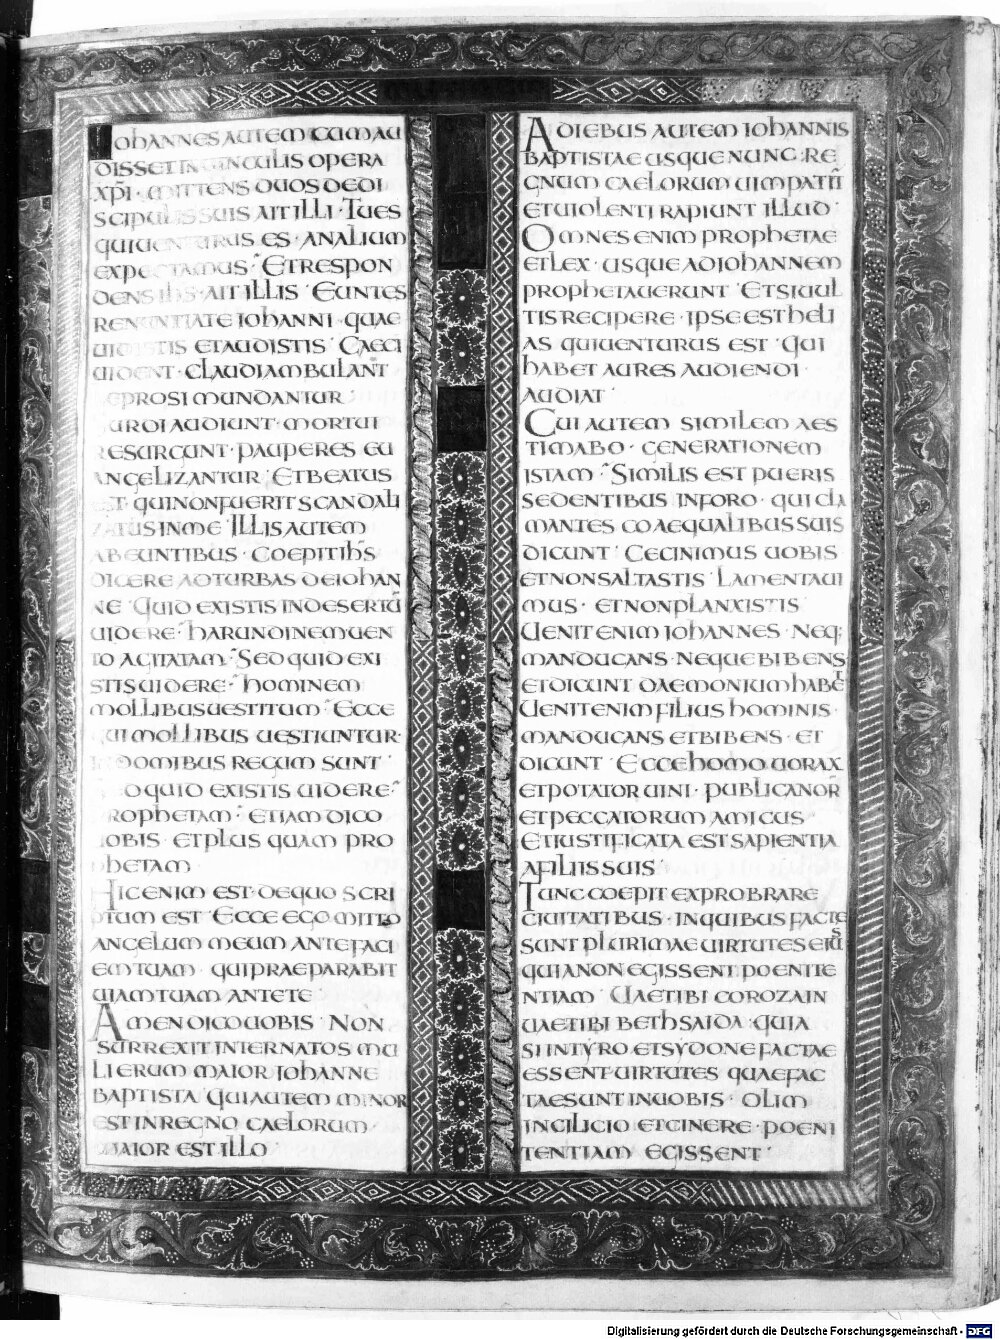 IOHANNES AUTEM CUM AU
DISSET IN VINCULIS OPERA
XP̄I · MITTENS DUOS DEDI
SCIPULIS SUIS AIT ILLI · TU ES
QUI UENTURUS ES · AN ALIUM
EXPECTAMUS · ET RESPON
DENS IH̄S · AIT ILLIS · EUNTES
RENUNTIATE IOHANNI · QUAE
UIDISTIS ET AUDISTIS · CAECI
UIDENT · CLAUDI AMBULANT
LEPROSI MUNDANTUR
SURDI AUDIUNT · MORTUI
RESURGUNT · PAUPERES EU
ANGELIZANTUR · ET BEATUS
EST · QUI NON FUERIT SCANDALI
ZATUS IN ME · ILLIS AUTEM
ABEUNTIBUS · COEPIT IH̄S
DICERE AD TURBAS DE IOHAN
NE · QUID EXISTIS IN DESERTŪ
UIDERE · HARUNDINEM UEN
TO AGITATAM · SED QUID EXI
STIS UIDERE · HOMINEM
MOLLIBUS UESTITUM · ECCE
QUI MOLLIBUS UESTIUNTUR ·
IN DOMIBUS REGUM SUNT ·
SED QUID EXISTIS UIDERE ·
PROPHETAM · ETIAM DICO
UOBIS · ET PLUS QUAM PRO
PHETAM ·
HIC ENIM EST · DE QUO SCRI
PTUM EST · ECCE EGO MITTO
ANGELUM MEUM ANTE FACI
EM TUAM · QUI PRAEPARABIT
UIAM TUAM ANTE TE ·
AMEN DICO UOBIS · NON
SURREXIT INTER NATOS MU
LIERUM MAIOR IOHANNE
BAPTISTA · QUI AUTEM MINOR
EST IN REGNO CAELORUM ·
MAIOR EST ILLO ·
A DIEBUS AUTEM IOHANNIS
BAPTISTAE USQUE NUNC · RE
GNUM CAELORUM UIM PATIT̄
ET UIOLENTI RAPIUNT ILLUD ·
OMNES ENIM PROPHETAE
ET LEX · USQUE AD IOHANNEM
PROPHETAUERUNT · ET SI UUL
TIS RECIPERE · IPSE EST HELI
AS QUI UENTURUS EST · QUI
HABET AURES AUDIENDI ·
AUDIAT ·
CUI AUTEM SIMILEM AES
TIMABO · GENERATIONEM
ISTAM · SIMILIS EST PUERIS
SEDENTIBUS IN FORO · QUI CLA
MANTES COAEQUALIBUS SUIS
DICUNT · CECINIMUS UOBIS
ET NON SALTASTIS · LAMENTAUI
MUS · ET NON PLANXISTIS ·
UENIT ENIM IOHANNES · NEQ;
MANDUCANS · NEQUE BIBENS
ET DICUNT DAEMONIUM HABET
UENIT ENIM FILIUS HOMINIS ·
MANDUCANS ET BIBENS · ET
DICUNT · ECCE HOMO UORAX
ET POTATOR UINI · PUBLICANOR̄
ET PECCATORUM AMICUS ·
ET IUSTIFICATA EST SAPIENTIA
A FILIIS SUIS ·
TUNC COEPIT EXPROBRARE
CIUITATIBUS · IN QUIBUS FACTE
SUNT PLURIMAE UIRTUTES EIUS
QUIA NON EGISSENT POENITE
NTIAM · UAE TIBI COROZAIN
UAE TIBI BETHSAIDA · QUIA
SI IN TYRO ET SYDONE FACTAE
ESSENT UIRTUTES QUAE FAC
TAE SUNT IN UOBIS · OLIM
IN CILICIO ET CINERE · POENI
TENTIAM EGISSENT ·
Digitalisierung gefördert durch die Deutsche Forschungsgemeinschaft - DFG